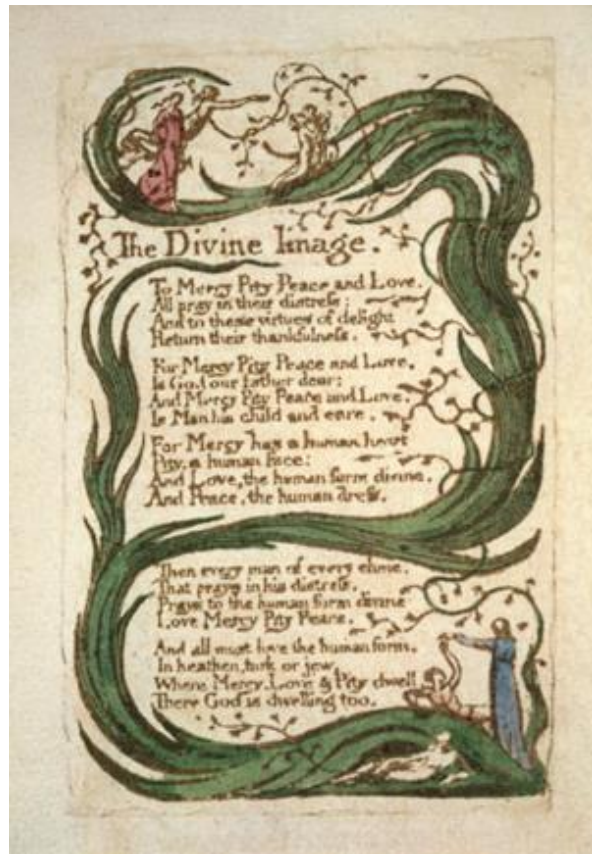 The Divine Image.
To Mercy Pity Peace and Love,
All pray in their distress:
And to these virtues of delight
Return their thankfulness.
For Mercy Pity Peace and Love,
Is God our father dear:
And Mercy Pity Peace and Love,
Is Man his child and care.
For Mercy has a human heart
Pity, a human face:
And Love, the human form divine.
And Peace, the human dress.
Then every man of every clime,
That prays in his distress,
Prays to the human form divine
Love Mercy Pity Peace.
And all must love the human form,
In heathen, turk or jew,
Where Mercy, Love & Pity dwell
There God is dwelling too.